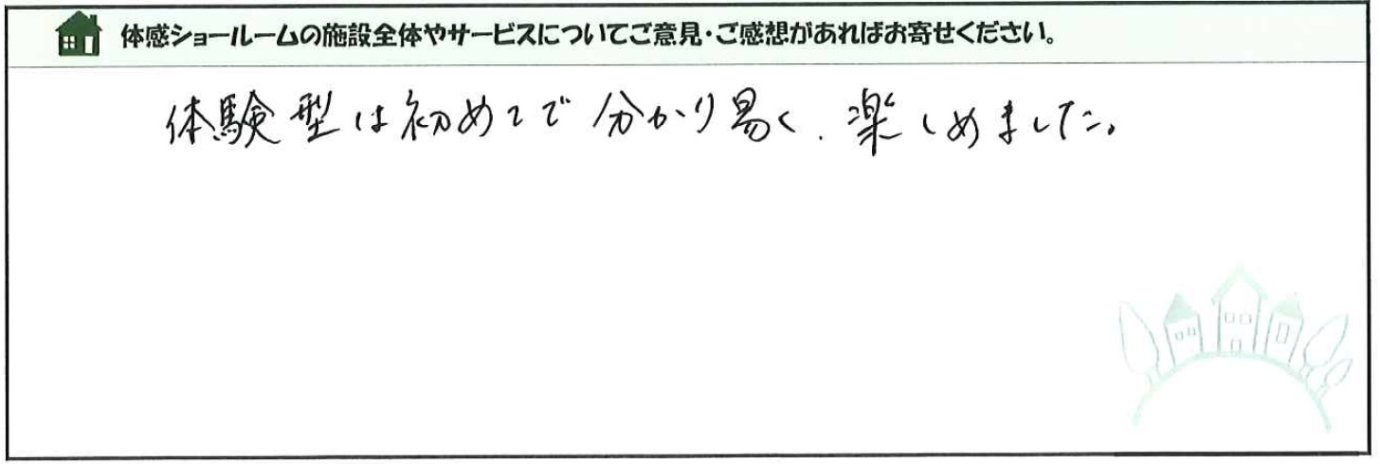 体感ショールームの施設全体やサービスについてご意見・ご感想があればお寄せください。
体験型は初めてで分かり易く、楽しめました。